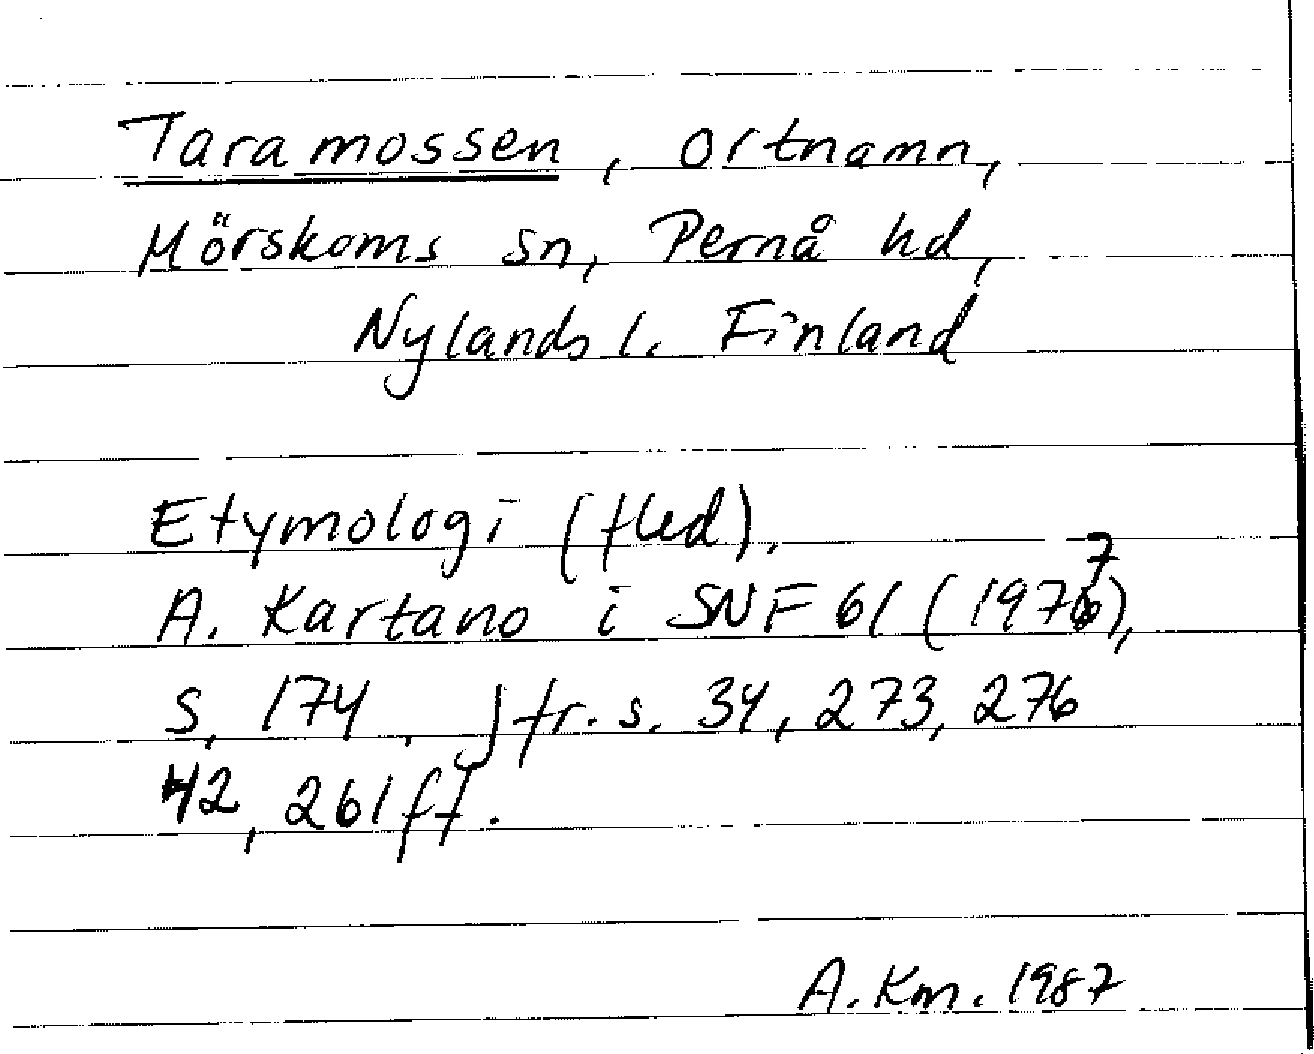 Taramossen, ortnamn,
Mörskoms sn, Pernå hd,
Nylands l. Finland
Etymologi (fled).
A. Kartano i SNF 61 (1977),
s. 174. jfr. s. 34, 273, 276
42, 261 ff.
A. Km. 1987